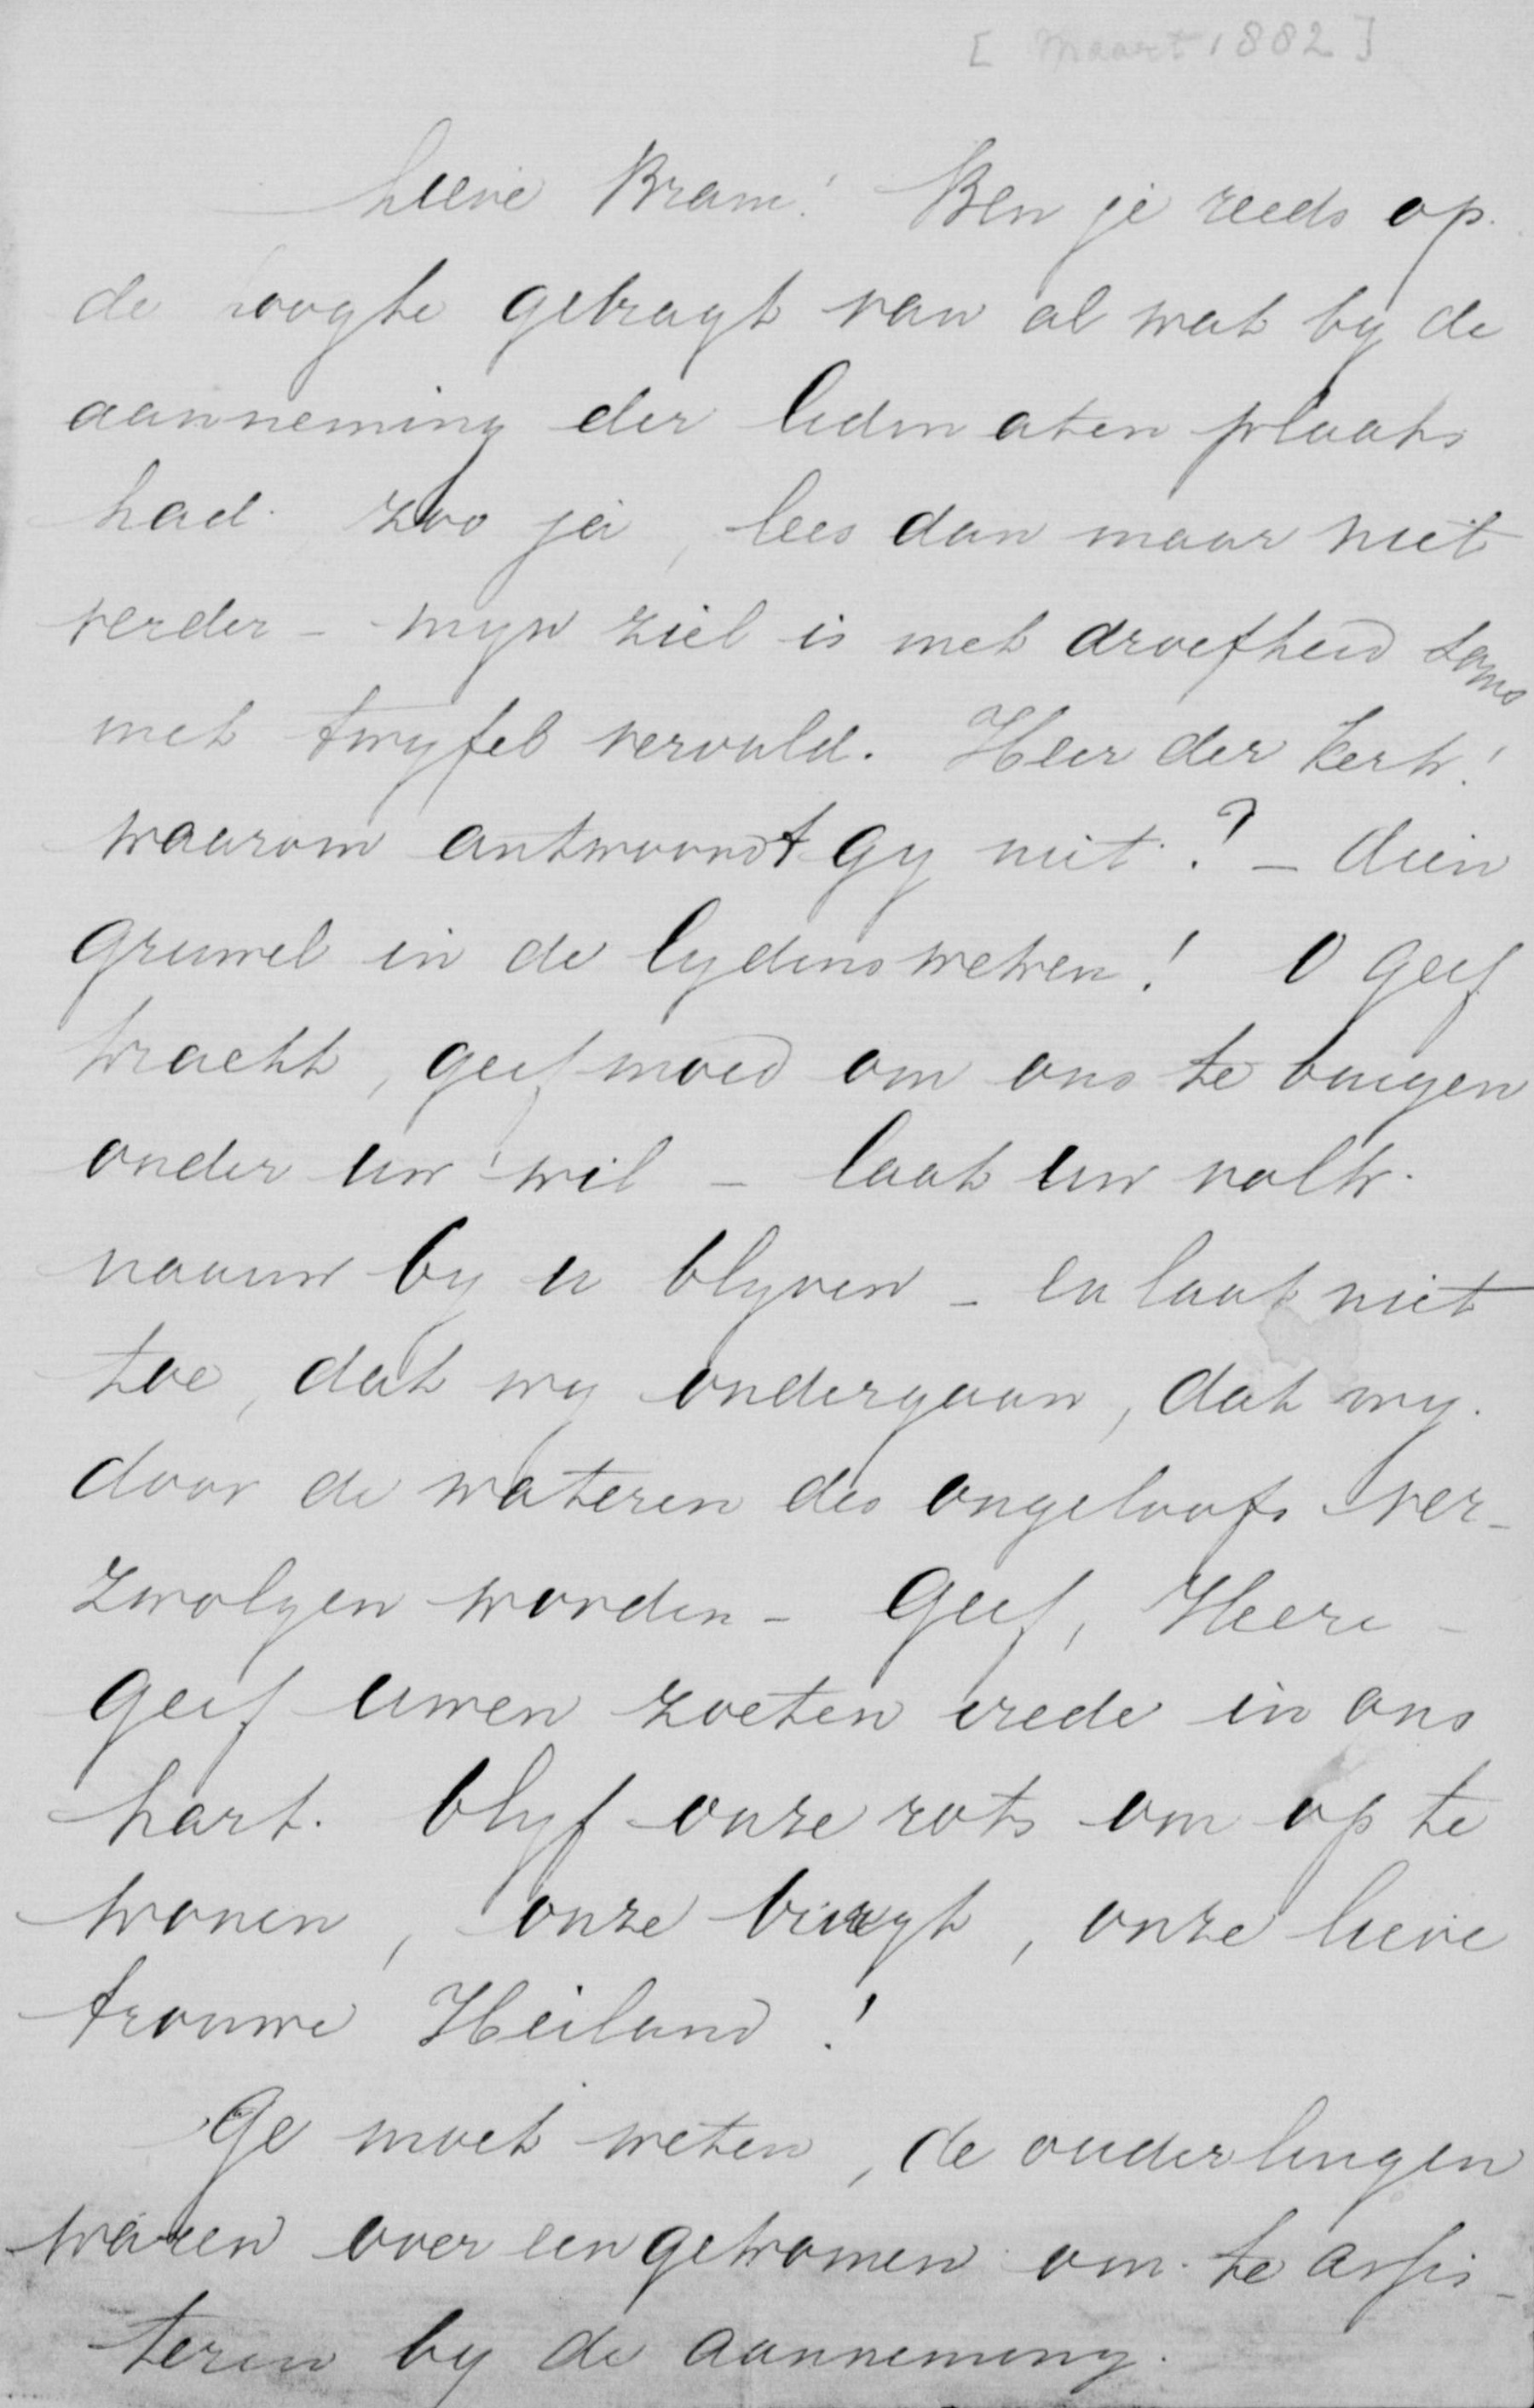 [Maart 1882]
Lieve Bram! Ben je reeds op
de hoogte gebragt van al wat by de
aanneming der lidmaten plaats
had. zoo ja, lees dan maar niet
verder – myn ziel is met droefheid soms
met twyfel vervuld. Heer der kerk!
waarom antwoordt Gy niet? – dien
gruwel in de lydensweken! O geef
kracht, geef moed om ons te buigen
onder uw wil – laat uw volk
naauw by u blyven – en laat niet
toe, dat wy ondergaan, dat wy
door de wateren des ongeloofs ver-
zwolgen worden – Geef, Heere –
geef uwen zoeten vrede in ons
hart. blyf onze rots om op te
wonen, onze burgt, onze lieve
trouwe Heiland!
Ge moet weten, de ouderlingen
waren overeengekomen om te assis-
teren by de aanneming.